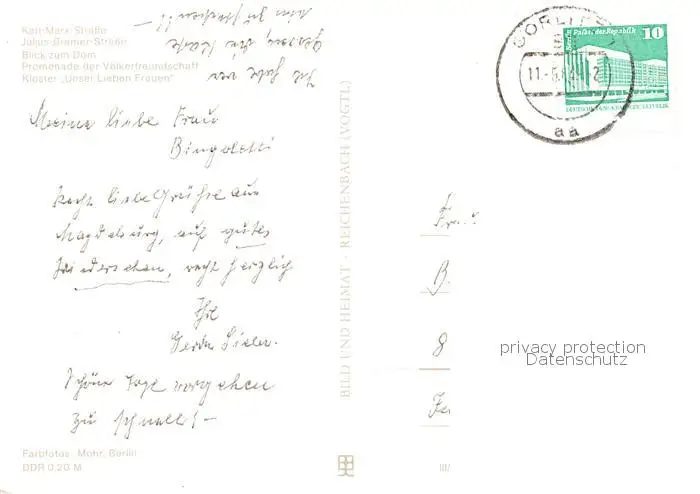 Karl-Marx-Straße
Julius-Bremer-Straße
Blick zum Dom
Promenade der Völkerfreundschaft
Kloster „Unser Lieben Frauen"
Meine liebe Frau
Recht liebe Grüße aus
Magdeburg, auf gutes
Wiedersehen, recht herzlich
Ihre
Schöne Tage vergehen
zu schnell! –
Ich habe
die Karte
Farbfotos: Mohr, Berlin
DDR 0,20 M
BILD UND HEIMAT · REICHENBACH (VOGTL)
GÖRLITZ
aa
Berlin Palast der Republik
10
DEUTSCHE DEMOKRATISCHE REPUBLIK
Frau
B.
8
III/
privacy protection
Datenschutz